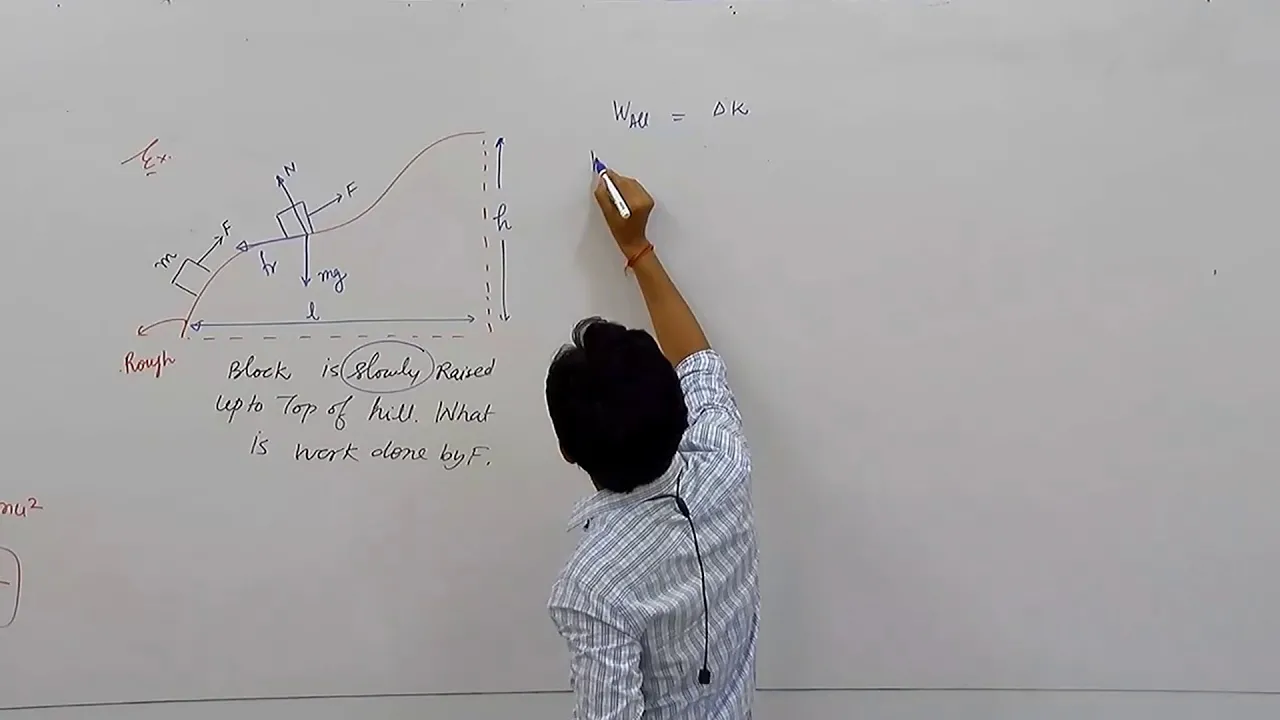 Ex.
W_All = ΔK
N
F
F
m
fr
mg
h
l
Rough
Block is slowly Raised
upto Top of hill. What
is work done by F.
mu²